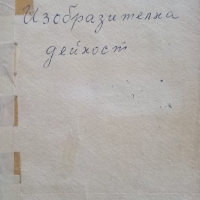 Изобразителна
дейност